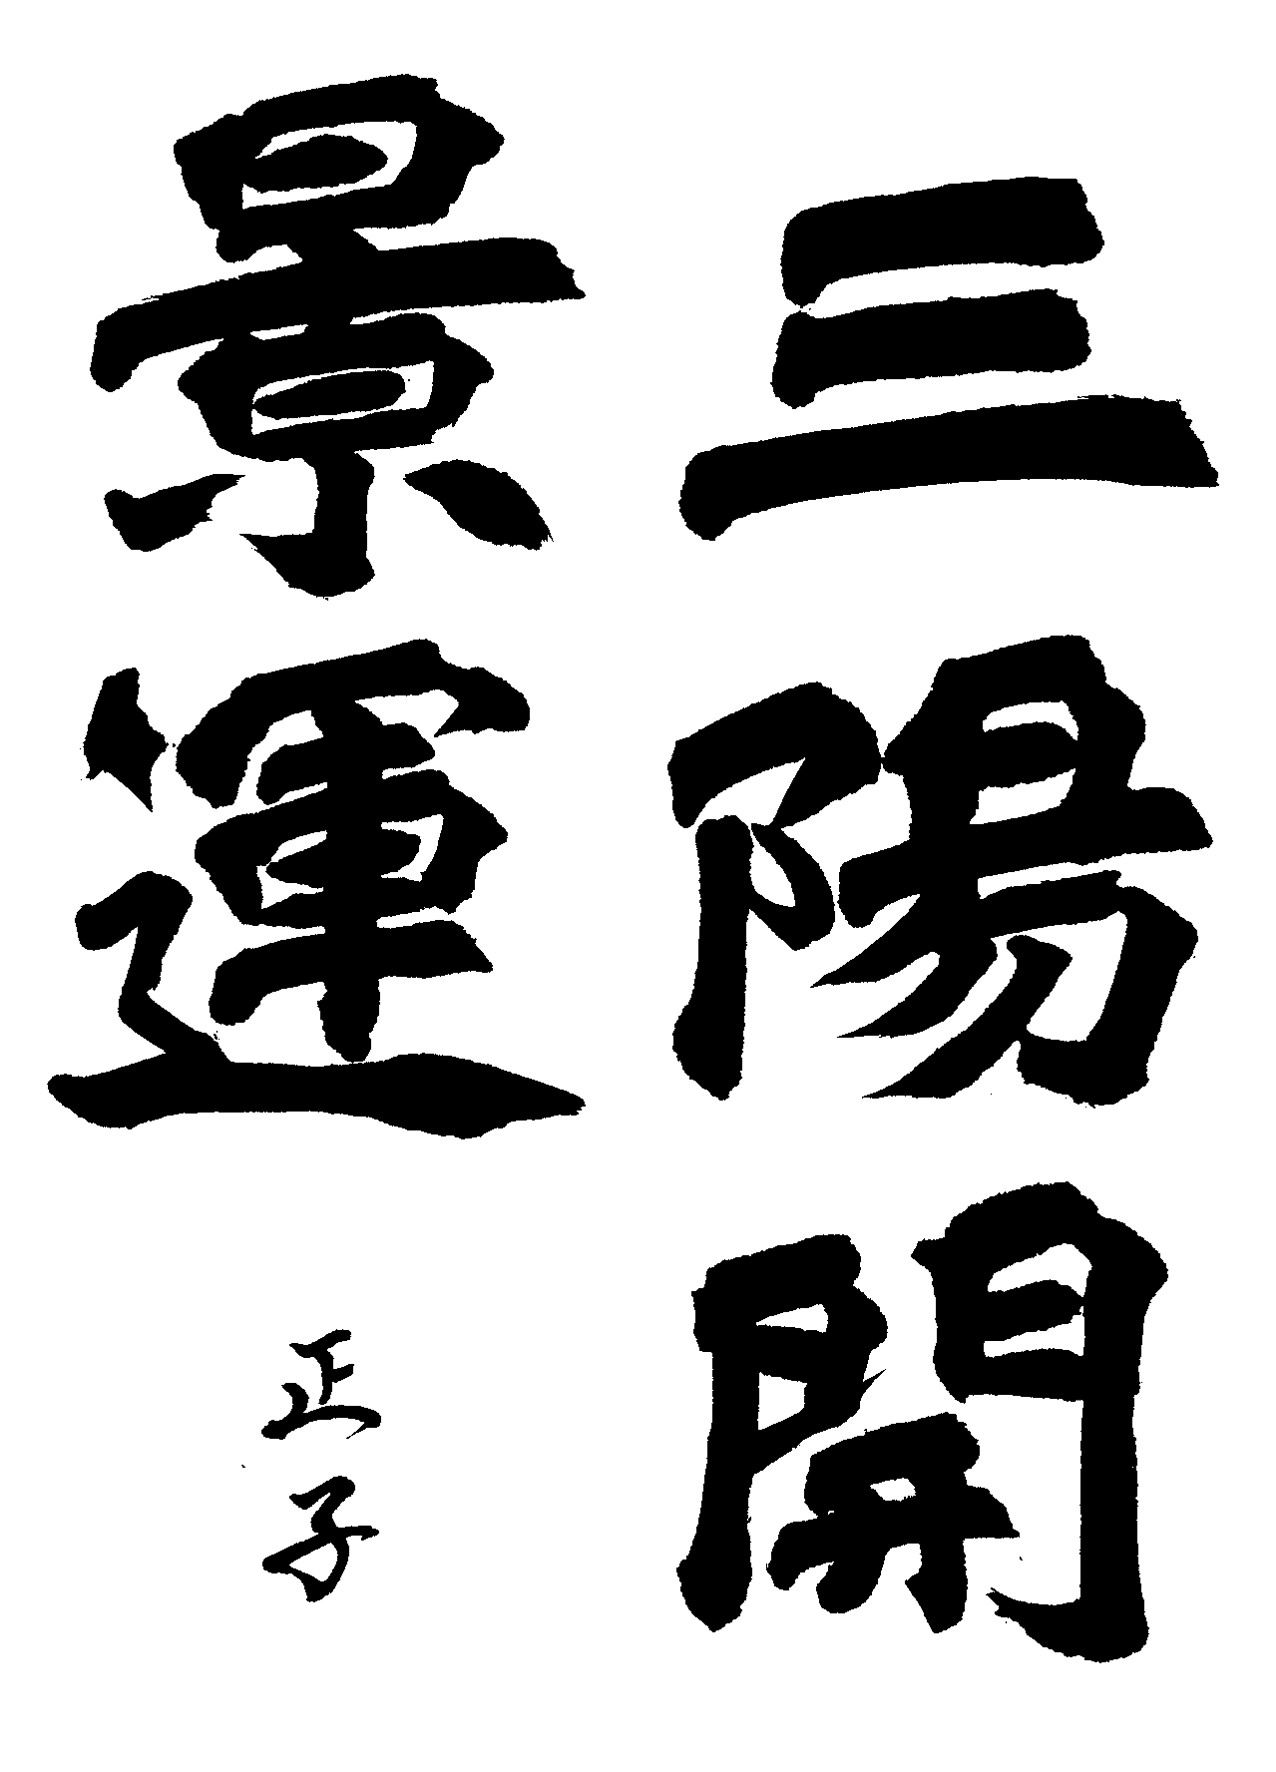 三陽開
景運
正子